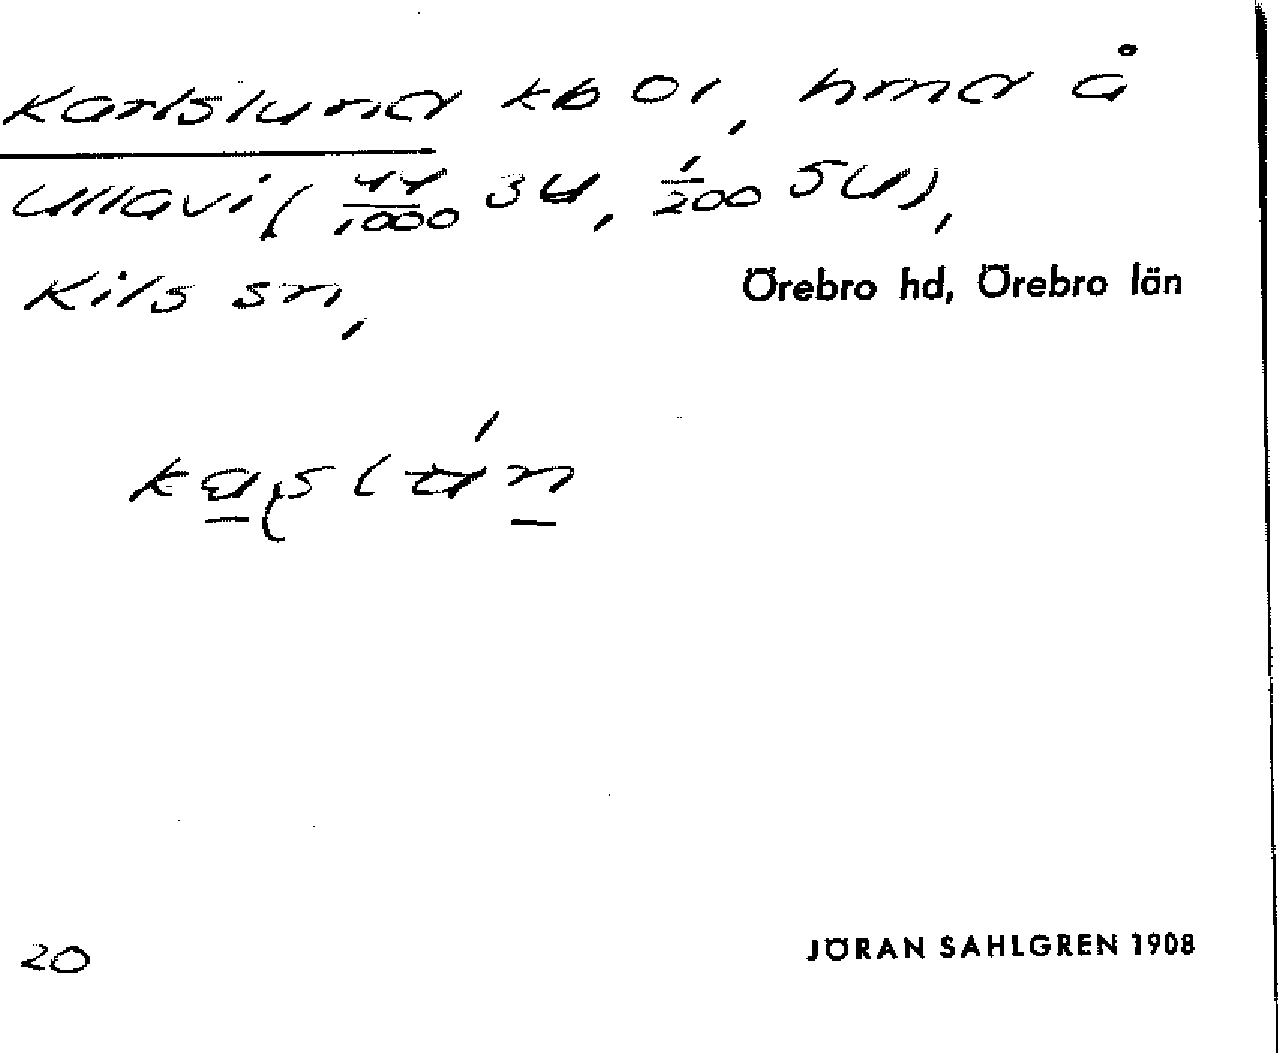 Karlslund kb Ol, hmd å
Ullavi (44/1000 3U, 1/200 5U),
Kils sn,
Örebro hd, Örebro län
20
JÖRAN SAHLGREN 1908